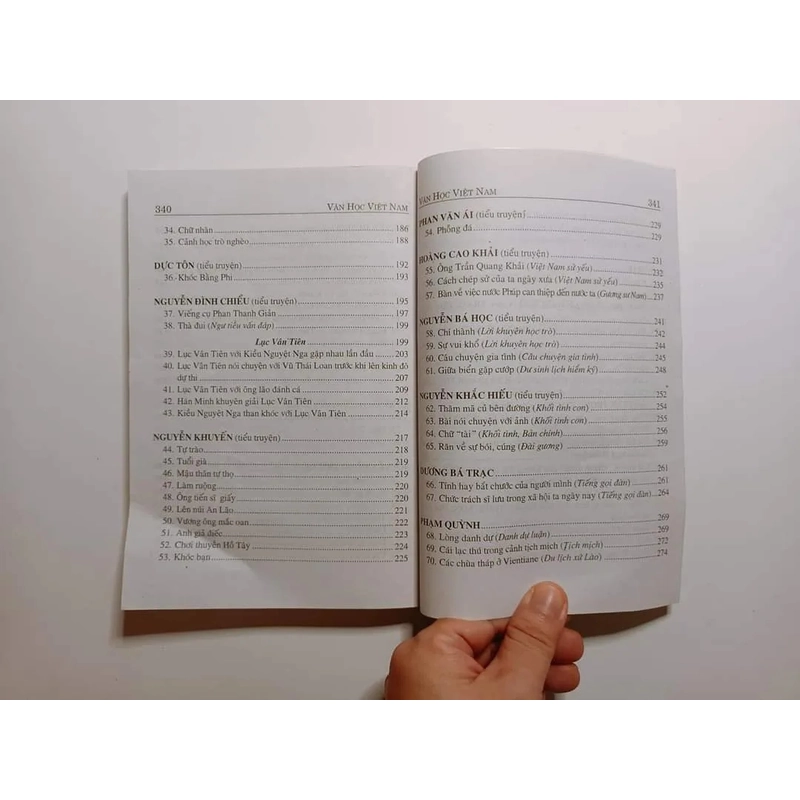 340 VĂN HỌC VIỆT NAM
34. Chữ nhàn 186
35. Cảnh học trò nghèo 188
DỰC TÔN (tiểu truyện) 192
36. Khóc Bằng Phi 193
NGUYỄN ĐÌNH CHIỂU (tiểu truyện) 195
37. Viếng cụ Phan Thanh Giản 197
38. Thà đui (Ngư tiều vấn đáp) 199
Lục Vân Tiên 199
39. Lục Vân Tiên với Kiều Nguyệt Nga gặp nhau lần đầu 203
40. Lục Vân Tiên nói chuyện với Vũ Thái Loan trước khi lên kinh đô
dự thi 207
41. Lục Vân Tiên với ông lão đánh cá 209
42. Hán Minh khuyên giải Lục Vân Tiên 212
43. Kiều Nguyệt Nga than khóc với Lục Vân Tiên 214
NGUYỄN KHUYẾN (tiểu truyện) 217
44. Tự trào 218
45. Tuổi già 219
46. Mậu thân tự thọ 219
47. Làm ruộng 220
48. Ông tiến sĩ giấy 220
49. Lên núi An Lão 221
50. Vương ông mắc oan 222
51. Anh giả điếc 223
52. Chơi thuyền Hồ Tây 224
53. Khóc bạn 225
VĂN HỌC VIỆT NAM 341
PHAN VĂN ÁI (tiểu truyện) 229
54. Phỗng đá 229
HOÀNG CAO KHẢI (tiểu truyện) 231
55. Ông Trần Quang Khải (Việt Nam sử yếu) 232
56. Cách chép sử của ta ngày xưa (Việt Nam sử yếu) 235
57. Bàn về việc nước Phúp can thiệp đến nước ta (Gương sử Nam) 237
NGUYỄN BÁ HỌC (tiểu truyện) 241
58. Chí thành (Lời khuyên học trò) 242
59. Sự vui khổ (Lời khuyên học trò) 244
60. Câu chuyện gia tình (Câu chuyện gia tình) 245
61. Giữa biển gặp cướp (Dư sinh lịch hiểm ký) 248
NGUYỄN KHẮC HIẾU (tiểu truyện) 252
62. Thăm mã cũ bên đường (Khối tình con) 254
63. Bài nói chuyện với ảnh (Khối tình con) 255
64. Chữ "tài" (Khối tình, Bản chính) 256
65. Răn về sự bói, cúng (Đài gương) 259
DƯƠNG BÁ TRẠC 261
66. Tính hay bắt chước của người mình (Tiếng gọi đàn) 261
67. Chức trách sĩ lưu trong xã hội ta ngày nay (Tiếng gọi đàn) 264
PHẠM QUỲNH 269
68. Lòng danh dự (Danh dự luận) 269
69. Cái lạc thú trong cảnh tịch mịch (Tịch mịch) 272
70. Các chùa tháp ở Vientiane (Du lịch xứ Lào) 274